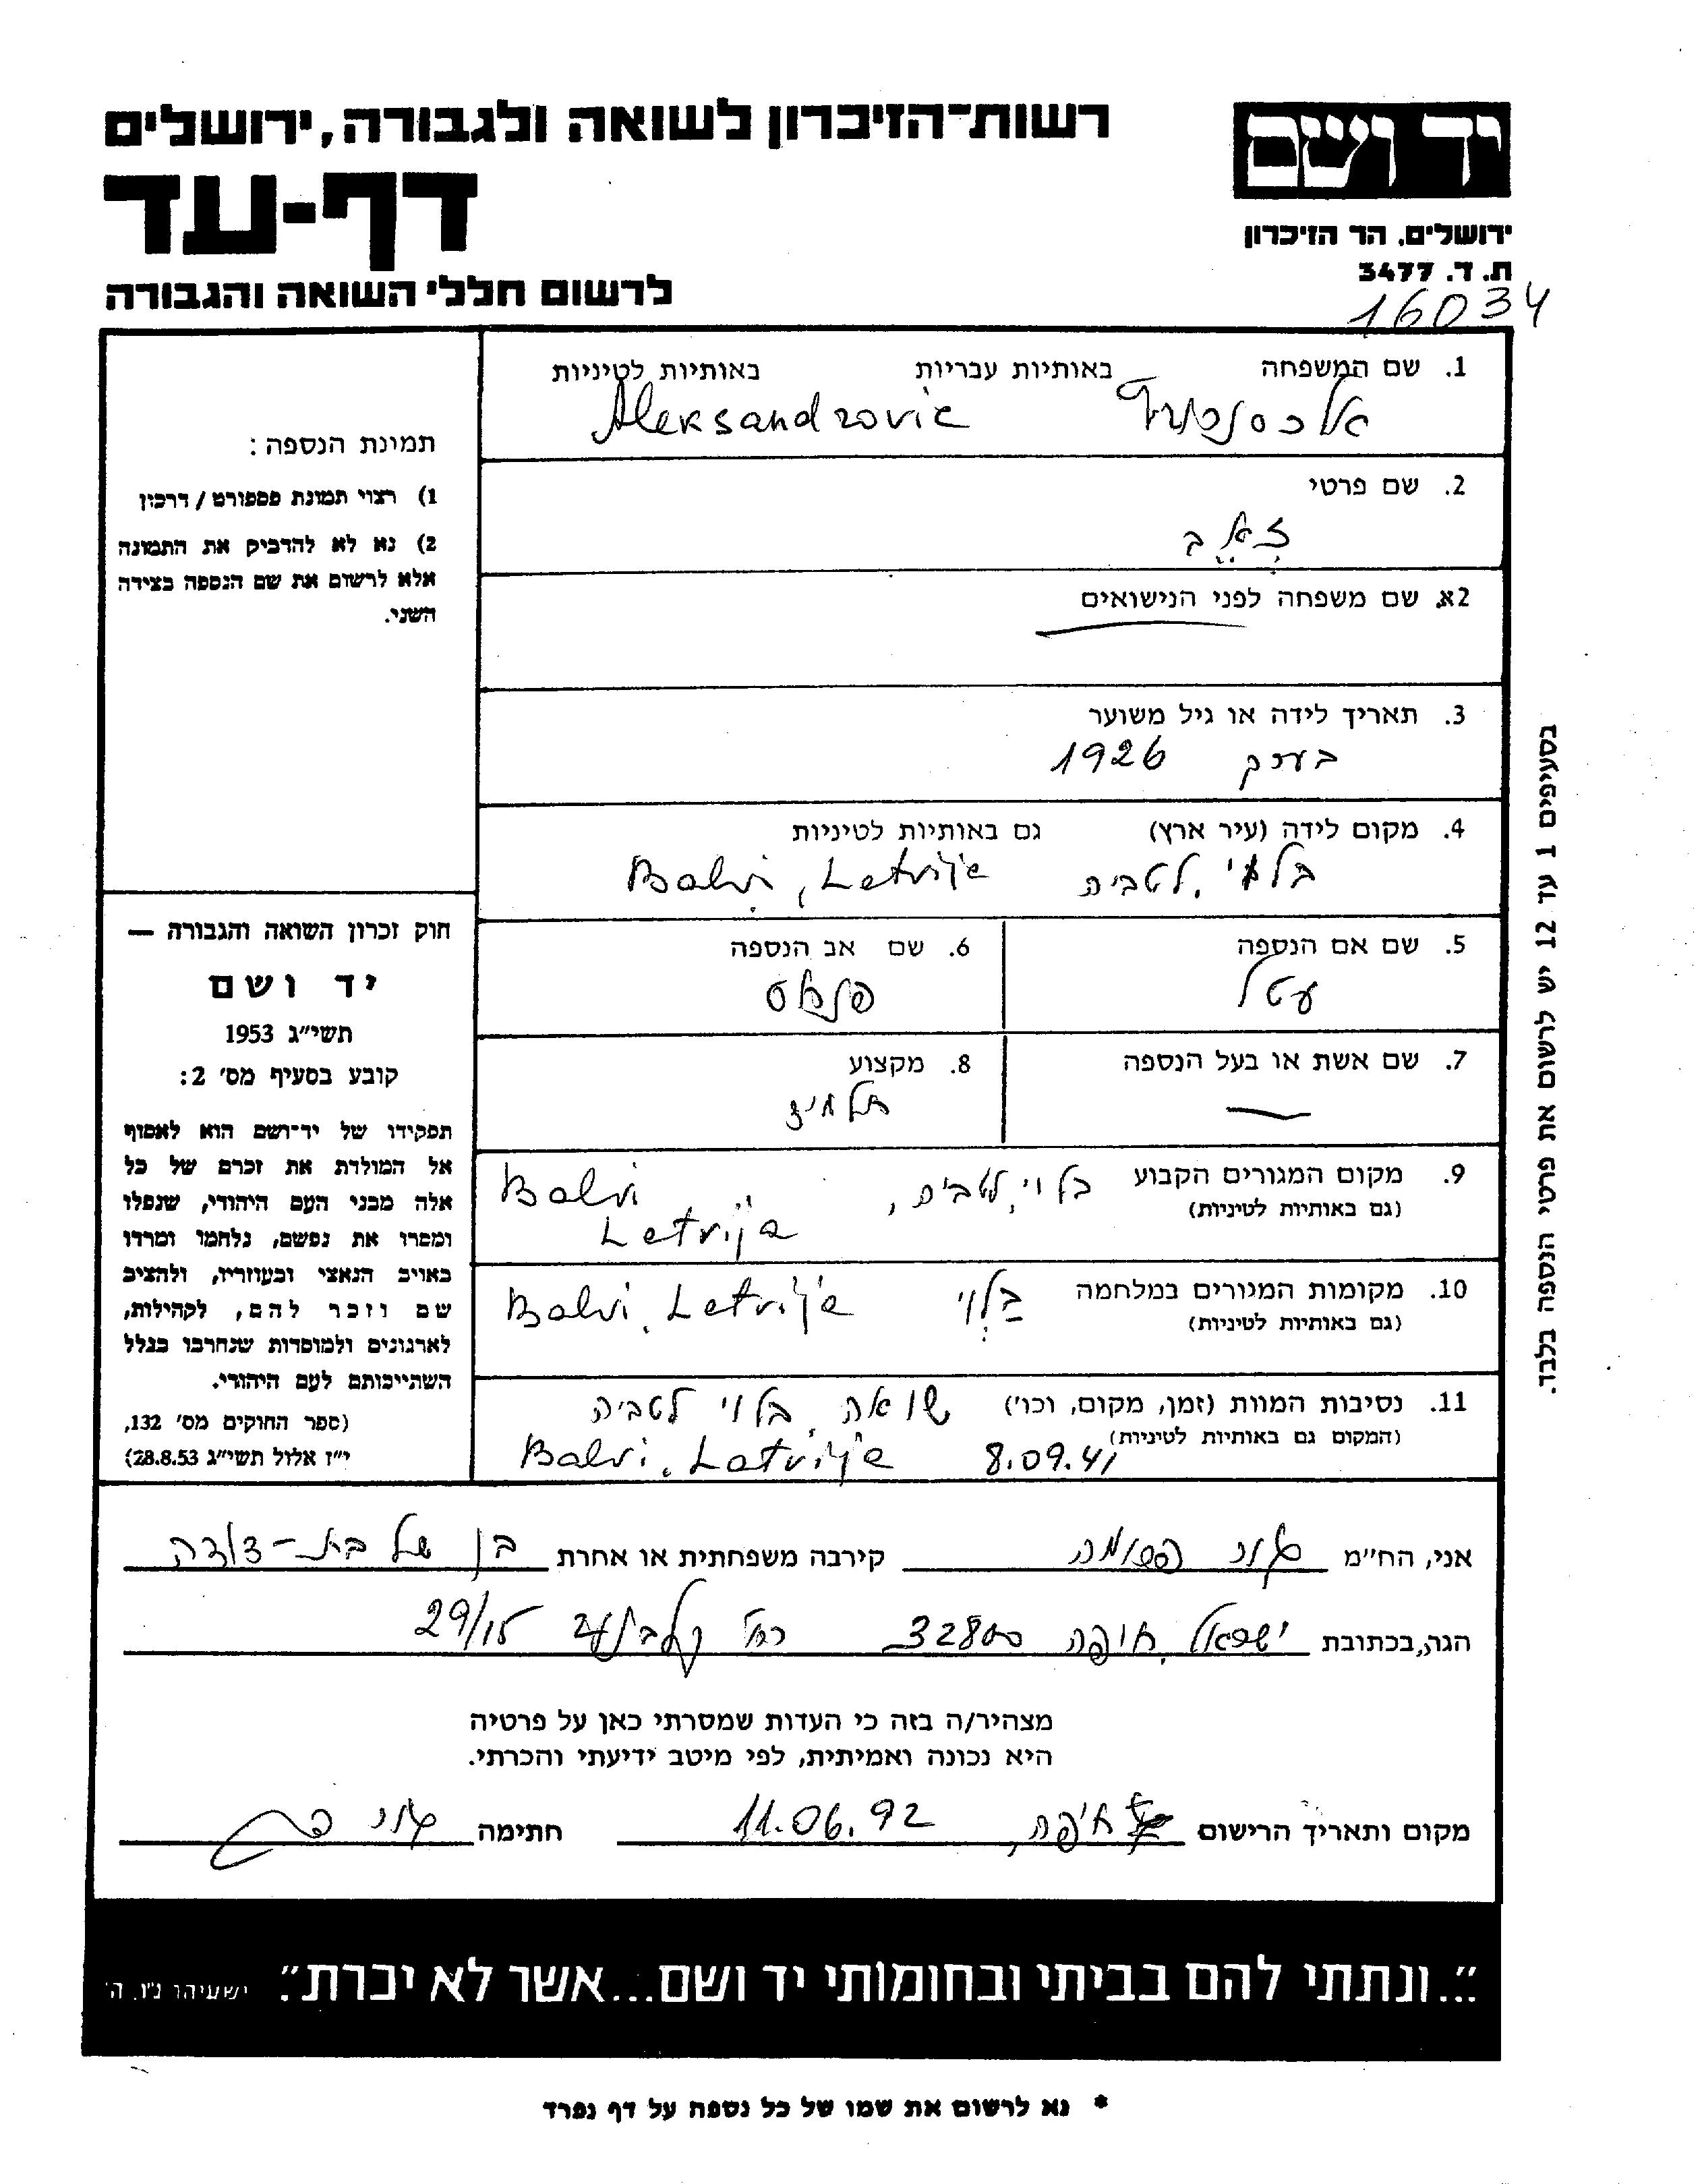 רשות־הזיכרון לשואה ולגבורה, ירושלים
דף-עד
לרשום חללי השואה והגבורה
יד ושם
ירושלים. הר הזיכרון
ת. ד. 3477
16034
1. שם המשפחה באותיות עבריות באותיות לטיניות
Aleksandrovic
2. שם פרטי
זאב
2א. שם משפחה לפני הנישואים
3. תאריך לידה או גיל משוער
בערך 1926
4. מקום לידה (עיר ארץ) גם באותיות לטיניות
בלוי, לטביה Balvi, Latvija
5. שם אם הנספה
עטל
6. שם אב הנספה
פנחס
7. שם אשת או בעל הנספה
8. מקצוע
תלמיד
9. מקום המגורים הקבוע בלוי, לטביה, Balvi
(גם באותיות לטיניות) Latvija
10. מקומות המגורים במלחמה בלוי Balvi, Latvija
(גם באותיות לטיניות)
11. נסיבות המוות (זמן, מקום, וכו׳) שואה, בלוי לטביה
(המקום גם באותיות לטיניות) 8.09.41 Balvi, Latvija
תמונת הנספה:
1) רצוי תמונת פספורט / דרכון
2) נא לא להדביק את התמונה
אלא לרשום את שם הנספה בצידה
השני.
חוק זכרון השואה והגבורה —
יד ושם
תשי״ג 1953
קובע בסעיף מס׳ 2:
תפקידו של יד־ושם הוא לאסוף
אל המולדת את זכרם של כל
אלה מבני העם היהודי, שנפלו
ומסרו את נפשם, נלחמו ומרדו
באויב הנאצי ובעוזריו, ולהציב
שם וזכר להם, לקהילות,
לארגונים ולמוסדות שנחרבו בגלל
השתייכותם לעם היהודי.
(ספר החוקים מס׳ 132,
י״ז אלול תשי״ג 28.8.53)
בסעיפים 1 עד 12 יש לרשום את פרטי הנספה בלבד.
אני, הח״מ קירבה משפחתית או אחרת בן של בת-דודה
הגר, בכתובת ישראל, חיפה 32800 רח׳ 29/15
מצהיר/ה בזה כי העדות שמסרתי כאן על פרטיה
היא נכונה ואמיתית, לפי מיטב ידיעתי והכרתי.
מקום ותאריך הרישום חיפה, 11.06.92 חתימה
״...ונתתי להם בביתי ובחומותי יד ושם...אשר לא יכרת״. ישעיהו נ״ו, ה׳
* נא לרשום את שמו של כל נספה על דף נפרד